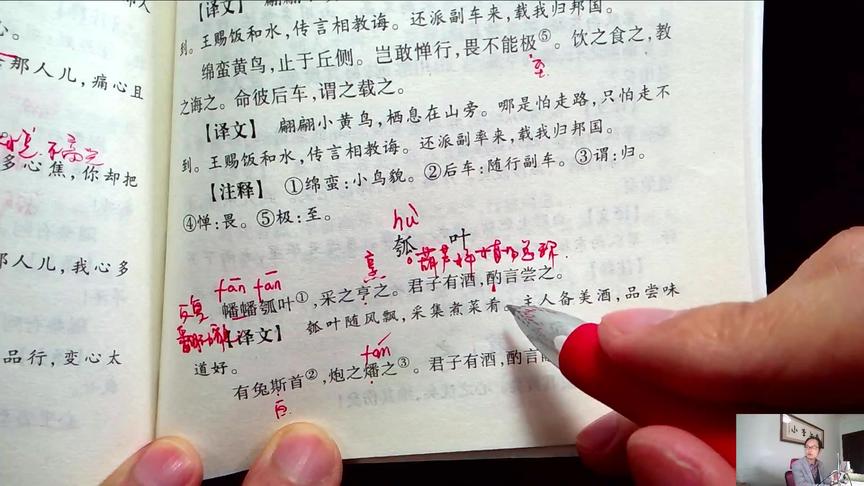 【译文】
到。王赐饭和水,传言相教诲。还派副车来,载我归邦国。
绵蛮黄鸟,止于丘侧。岂敢惮行,畏不能极⑤。饮之食之,教
至
之诲之。命彼后车,谓之载之。
【译文】 翩翩小黄鸟,栖息在山旁。哪是怕走路,只怕走不
到。王赐饭和水,传言相教诲。还派副率来,载我归邦国。
【注释】 ①绵蛮:小鸟貌。②后车:随行副车。③谓:归。
④惮:畏。⑤极:至。
hù
瓠 叶
烹
fān fān
幡幡瓠叶①,采之亨之。君子有酒,酌言尝之。
【译文】 瓠叶随风飘,采集煮菜肴。主人备美酒,品尝味
道好。
fán
有兔斯首②,炮之燔之③。君子有酒,酌言
那人儿,痛心且
多心焦,你却把
那人儿,我心多
品行,变心太